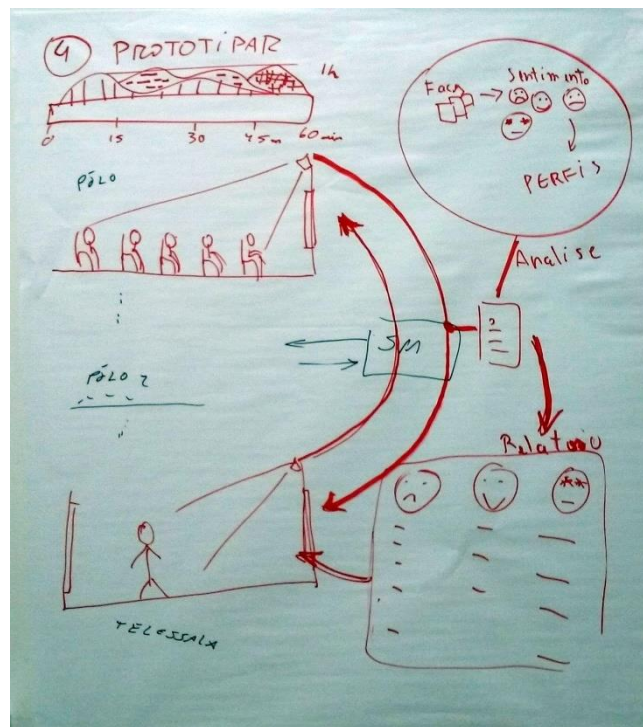 4 PROTOTIPAR
1h
0 15 30 45m 60 min
PÓLO
Faces
Sentimento
PERFIS
Analise
SM
PÓLO 2
Relatorio
TELESSALA